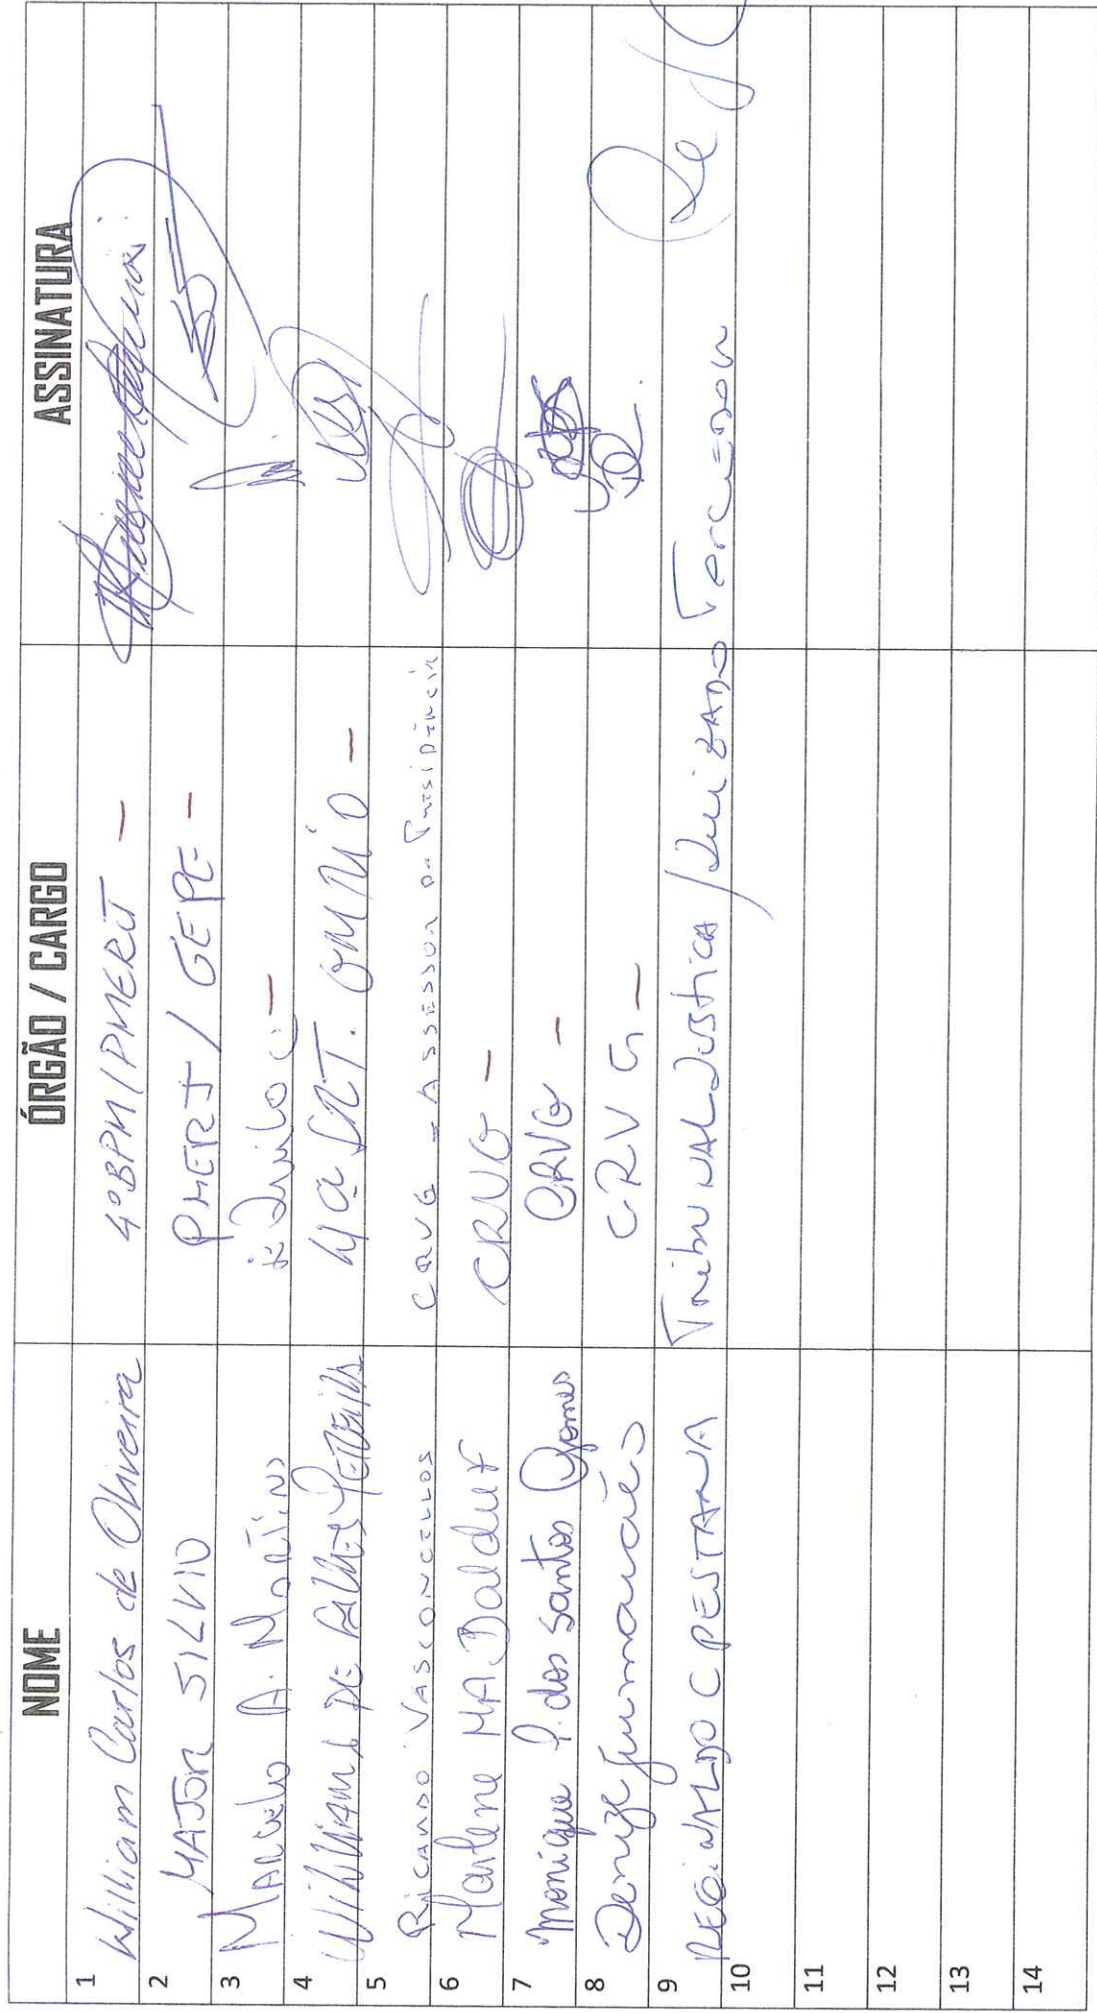 NOME ÓRGÃO / CARGO ASSINATURA
1 William Carlos de Oliveira 4º BPM / PMERJ -
2 MAJOR SILVIO PMERJ / GEPE -
3 Marcelo A. Martins -
4 William DE 4ª INT. -
5 RICARDO VASCONCELLOS CRVG - ASSESSOR DA PRESIDÊNCIA
6 Marlene MA Balduz CRVG -
7 Monique P. dos Santos Gomes CRVG -
8 Denize Guimarães CRVG -
9 REGINALDO C PESTANA Tribunal Justica / Juizado Torcedor
10
11
12
13
14